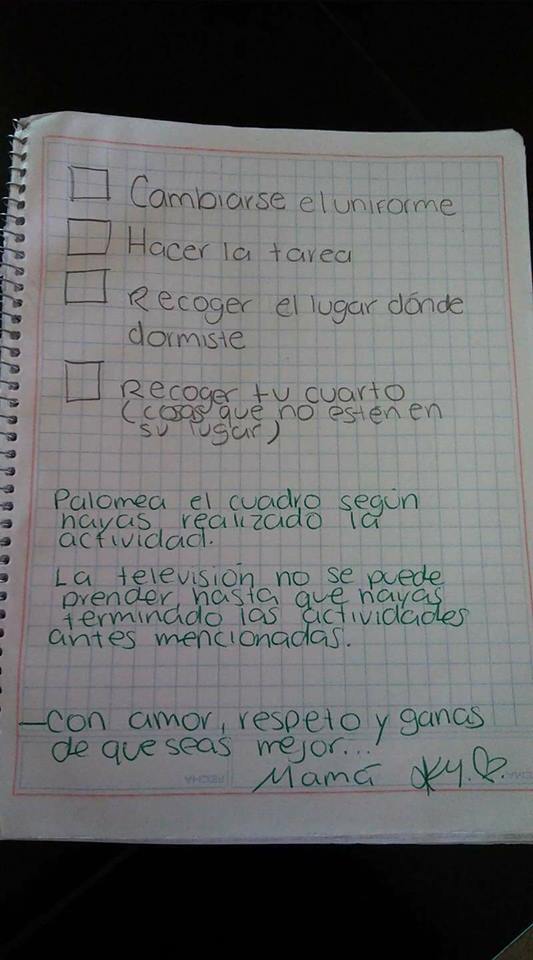 Cambiarse el uniforme
Hacer la tarea
Recoger el lugar dónde
dormiste
Recoger tu cuarto
(cosas que no estén en
su lugar)
Palomea el cuadro según
hayas realizado la
actividad.
La televisión no se puede
prender hasta que hayas
terminado las actividades
antes mencionadas.
—Con amor, respeto y ganas
de que seas mejor...
Mamá
FECHA